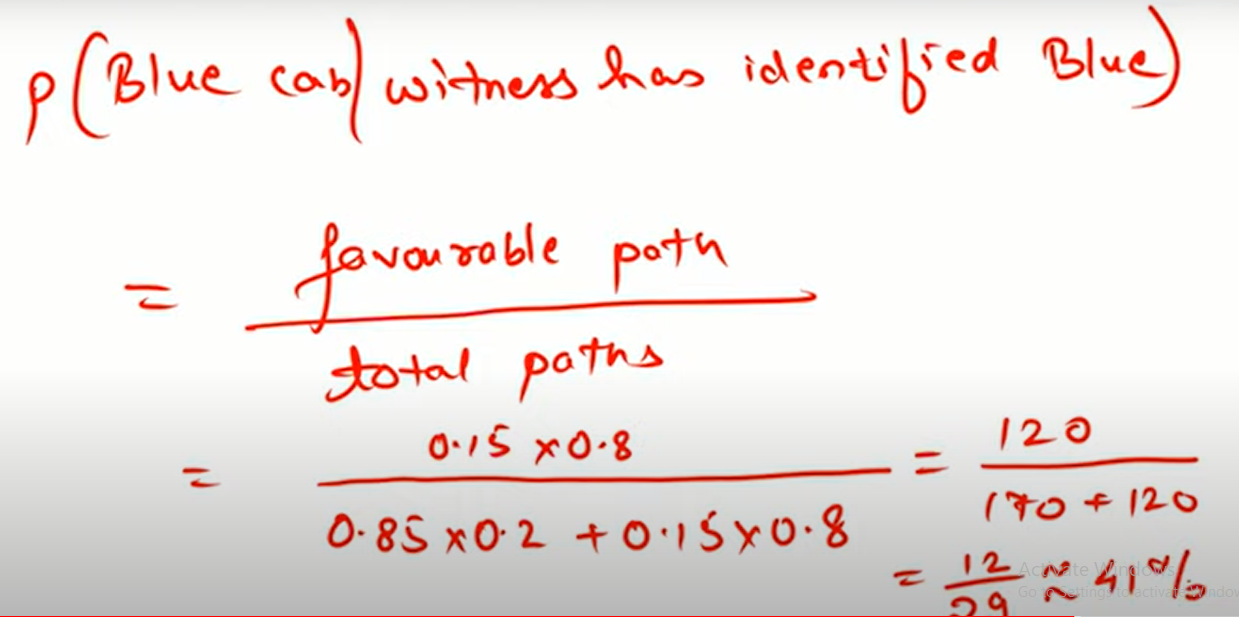 P(Blue cab| witness has identified Blue)
= favourable path
total paths
= 0.15 x 0.8 = 120
0.85 x 0.2 + 0.15 x 0.8 170 + 120
= 12 ≈ 41%
29
Activate Windows
Go to Settings to activate Window